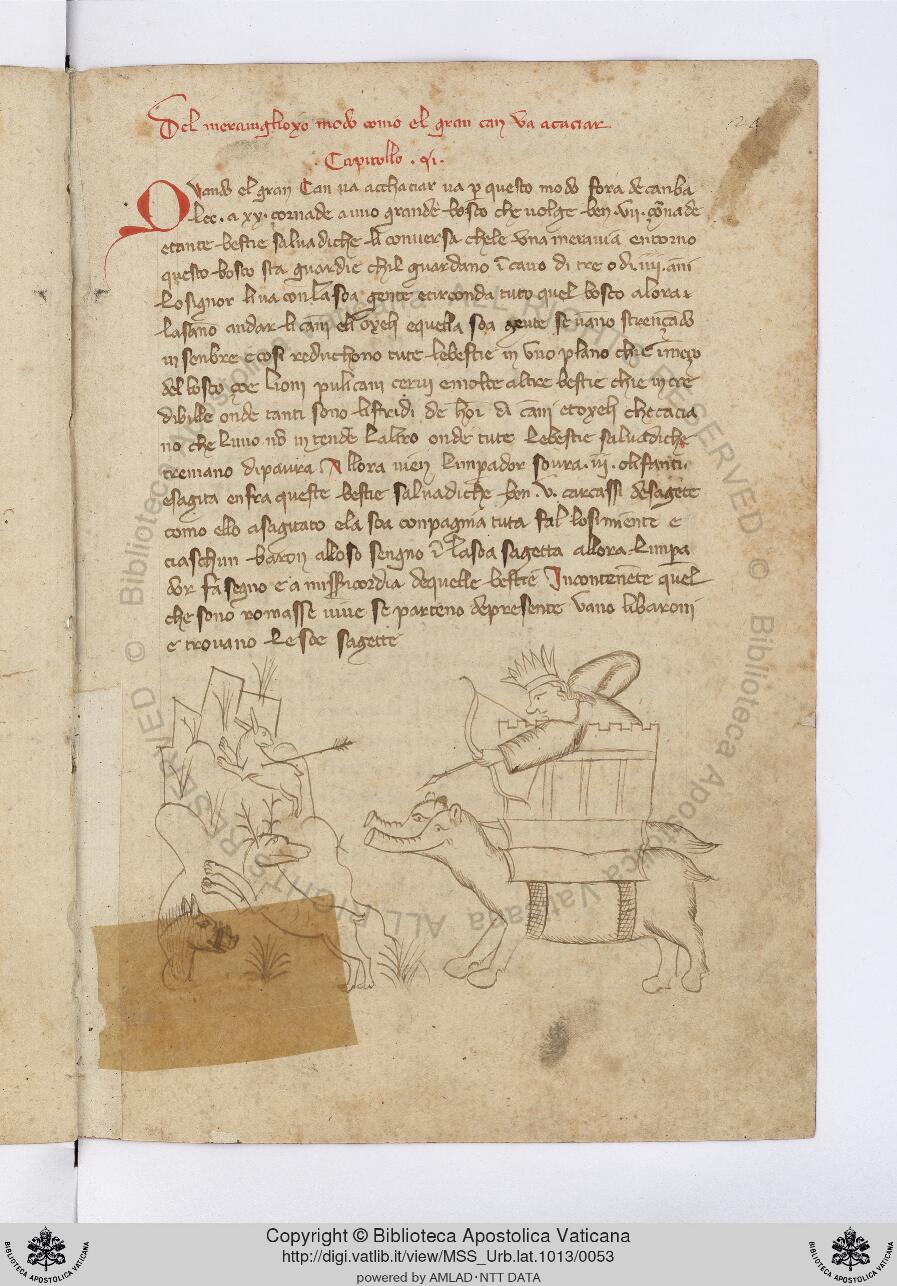 Del meraviglioxo modo como el gran can va acaciar
24
. Capitollo . xi .
Quando el gran Can va acchaciar va p questo modo fora de canba
lec . a xx . çornade a uno grande bosco che volge ben . vii . çornade
e tante bestie salvadiche li conversa che le una meravia entorno
questo bosco sta guardie chil guardano i cavo di tre o di . iiii . ani
lo signor li va con la soa gente e circonda tuto quel bosco alora
lasano andar li cani eli oxeli e quella soa gente se vano strençado
insenbre e cosi reduchono tute le bestie in uno plano chie i meço
del bosco çoe lioni pulicani cervi e molte altre bestie chie incre
dibille onde tanti sono li stridi de hoi di cani et oxeli che cacia
no che l uno no intende l altro onde tute le bestie salvadiche
tremano di paura Allora vien l inpador sovra . iii . olifanti .
e sagita enfra queste bestie salvadiche ben . v . carcassi de sagete
como ello a sagitato e la soa conpagnia tuta fa l losimiente e
ciaschun baron a lo so sengno i la soa sagetta allora l inpa
dor fa segno e a missicordia de quelle bestie Incontenete quel
che sono romasse vive se parteno de presente vano li baroni
e trovano le soe sagette
© Biblioteca Apostolica Vaticana ALL RIGHTS RESERVED © Biblioteca Apostolica Vaticana ALL RIGHTS RESERVED
Copyright © Biblioteca Apostolica Vaticana
http://digi.vatlib.it/view/MSS_Urb.lat.1013/0053
powered by AMLAD·NTT DATA
BIBLIOTECA APOSTOLICA VATICANA
BIBLIOTECA APOSTOLICA VATICANA